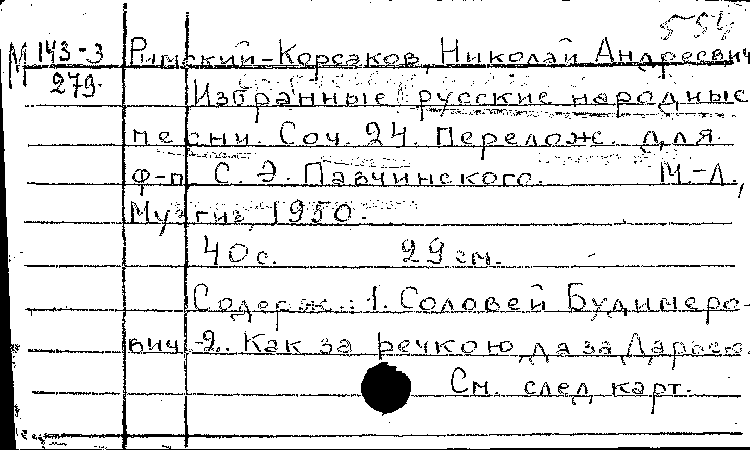 554
М 143-3 Римский-Корсаков, Николай Андреевич
279. Избранные русские народные
песни. Соч. 24. Перелож. для
ф-п. С. Э. Павчинского. М.-Л.,
Музгиз, 1950.
40 с. 29 см.
Содерж.: 1. Соловей Будимеро-
вич -2. Как за речкою, да за Дарьею.
См. след карт.